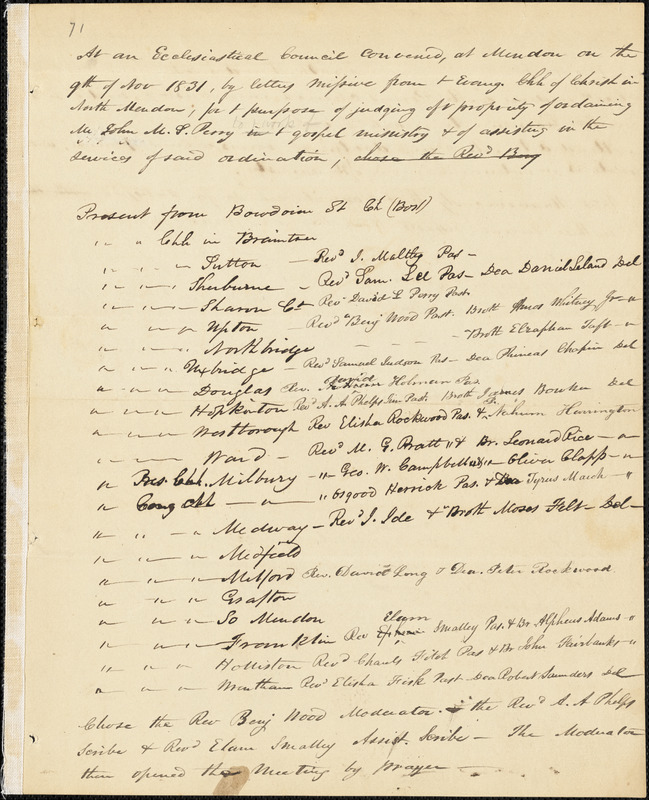 71
At an Ecclesiastical Council convened, at Mendon on the
9th of Nov 1831, by letters missive from t Evang. Chh of Christ in
North Mendon, for t purpose of judging of t propriety of ordaining
Mr John M. S. Perry in t gospel ministry & of assisting in the
services of said ordination, chose the Revd Benj
Present from Bowdoin St Ch (Bost)
" " Chh in Braintree
" " " Sutton — Revd J. Maltby Pas —
" " " Sherburne — Revd Sam. Lee Pas — Dea Daniel Leland Del
" " " Sharon Ct Revd David L Perry Past.
" " " Upton — Revd Benj Wood Past. Broth Amos Whitney Jr — "
" " " Northbridge — — — — Broth Elzaphan Taft — "
" " " Uxbridge — Revd Samuel Judson Pas — Dea Phineas Chapin Del
" " " Douglas Rev. David Holman Pas.
" " " Hopkinton Revd A. A. Phelps Jun Past. Broth James Bowker Del
" " " Westborough Rev Elisha Rockwood Pas. & Br Nahum Harrington
" " " Ward — Revd M. G. Pratt " & Br. Leonard Rice — "
" Pres. Chh. Milbury — " Geo. W. Campbell " & " Oliver Clapp — "
" Cong Chh — " — " Osgood Herrick Pas. & Dea Tyrus March — "
" " " Medway — Revd J. Ide & Broth Moses Felt — Del —
" " " Medfield
" " " Milford Rev. David Long & Dea. Peter Rockwood
" " " Grafton
" " " So Mendon
" " " Franklin Rev Elam Smalley Pas. & Br Alpheus Adams — "
" " " Holliston Revd Charls Fitch Pas & Br John Fairbanks — "
" " " Wrentham Revd Elisha Fisk Past — Dea Robert Saunders Del
Chose the Rev Benj Wood Moderator. — the Revd A. A Phelps
Scribe & Revd Elam Smalley Assist. Scribe — The Moderator
then opened the Meeting by prayer —